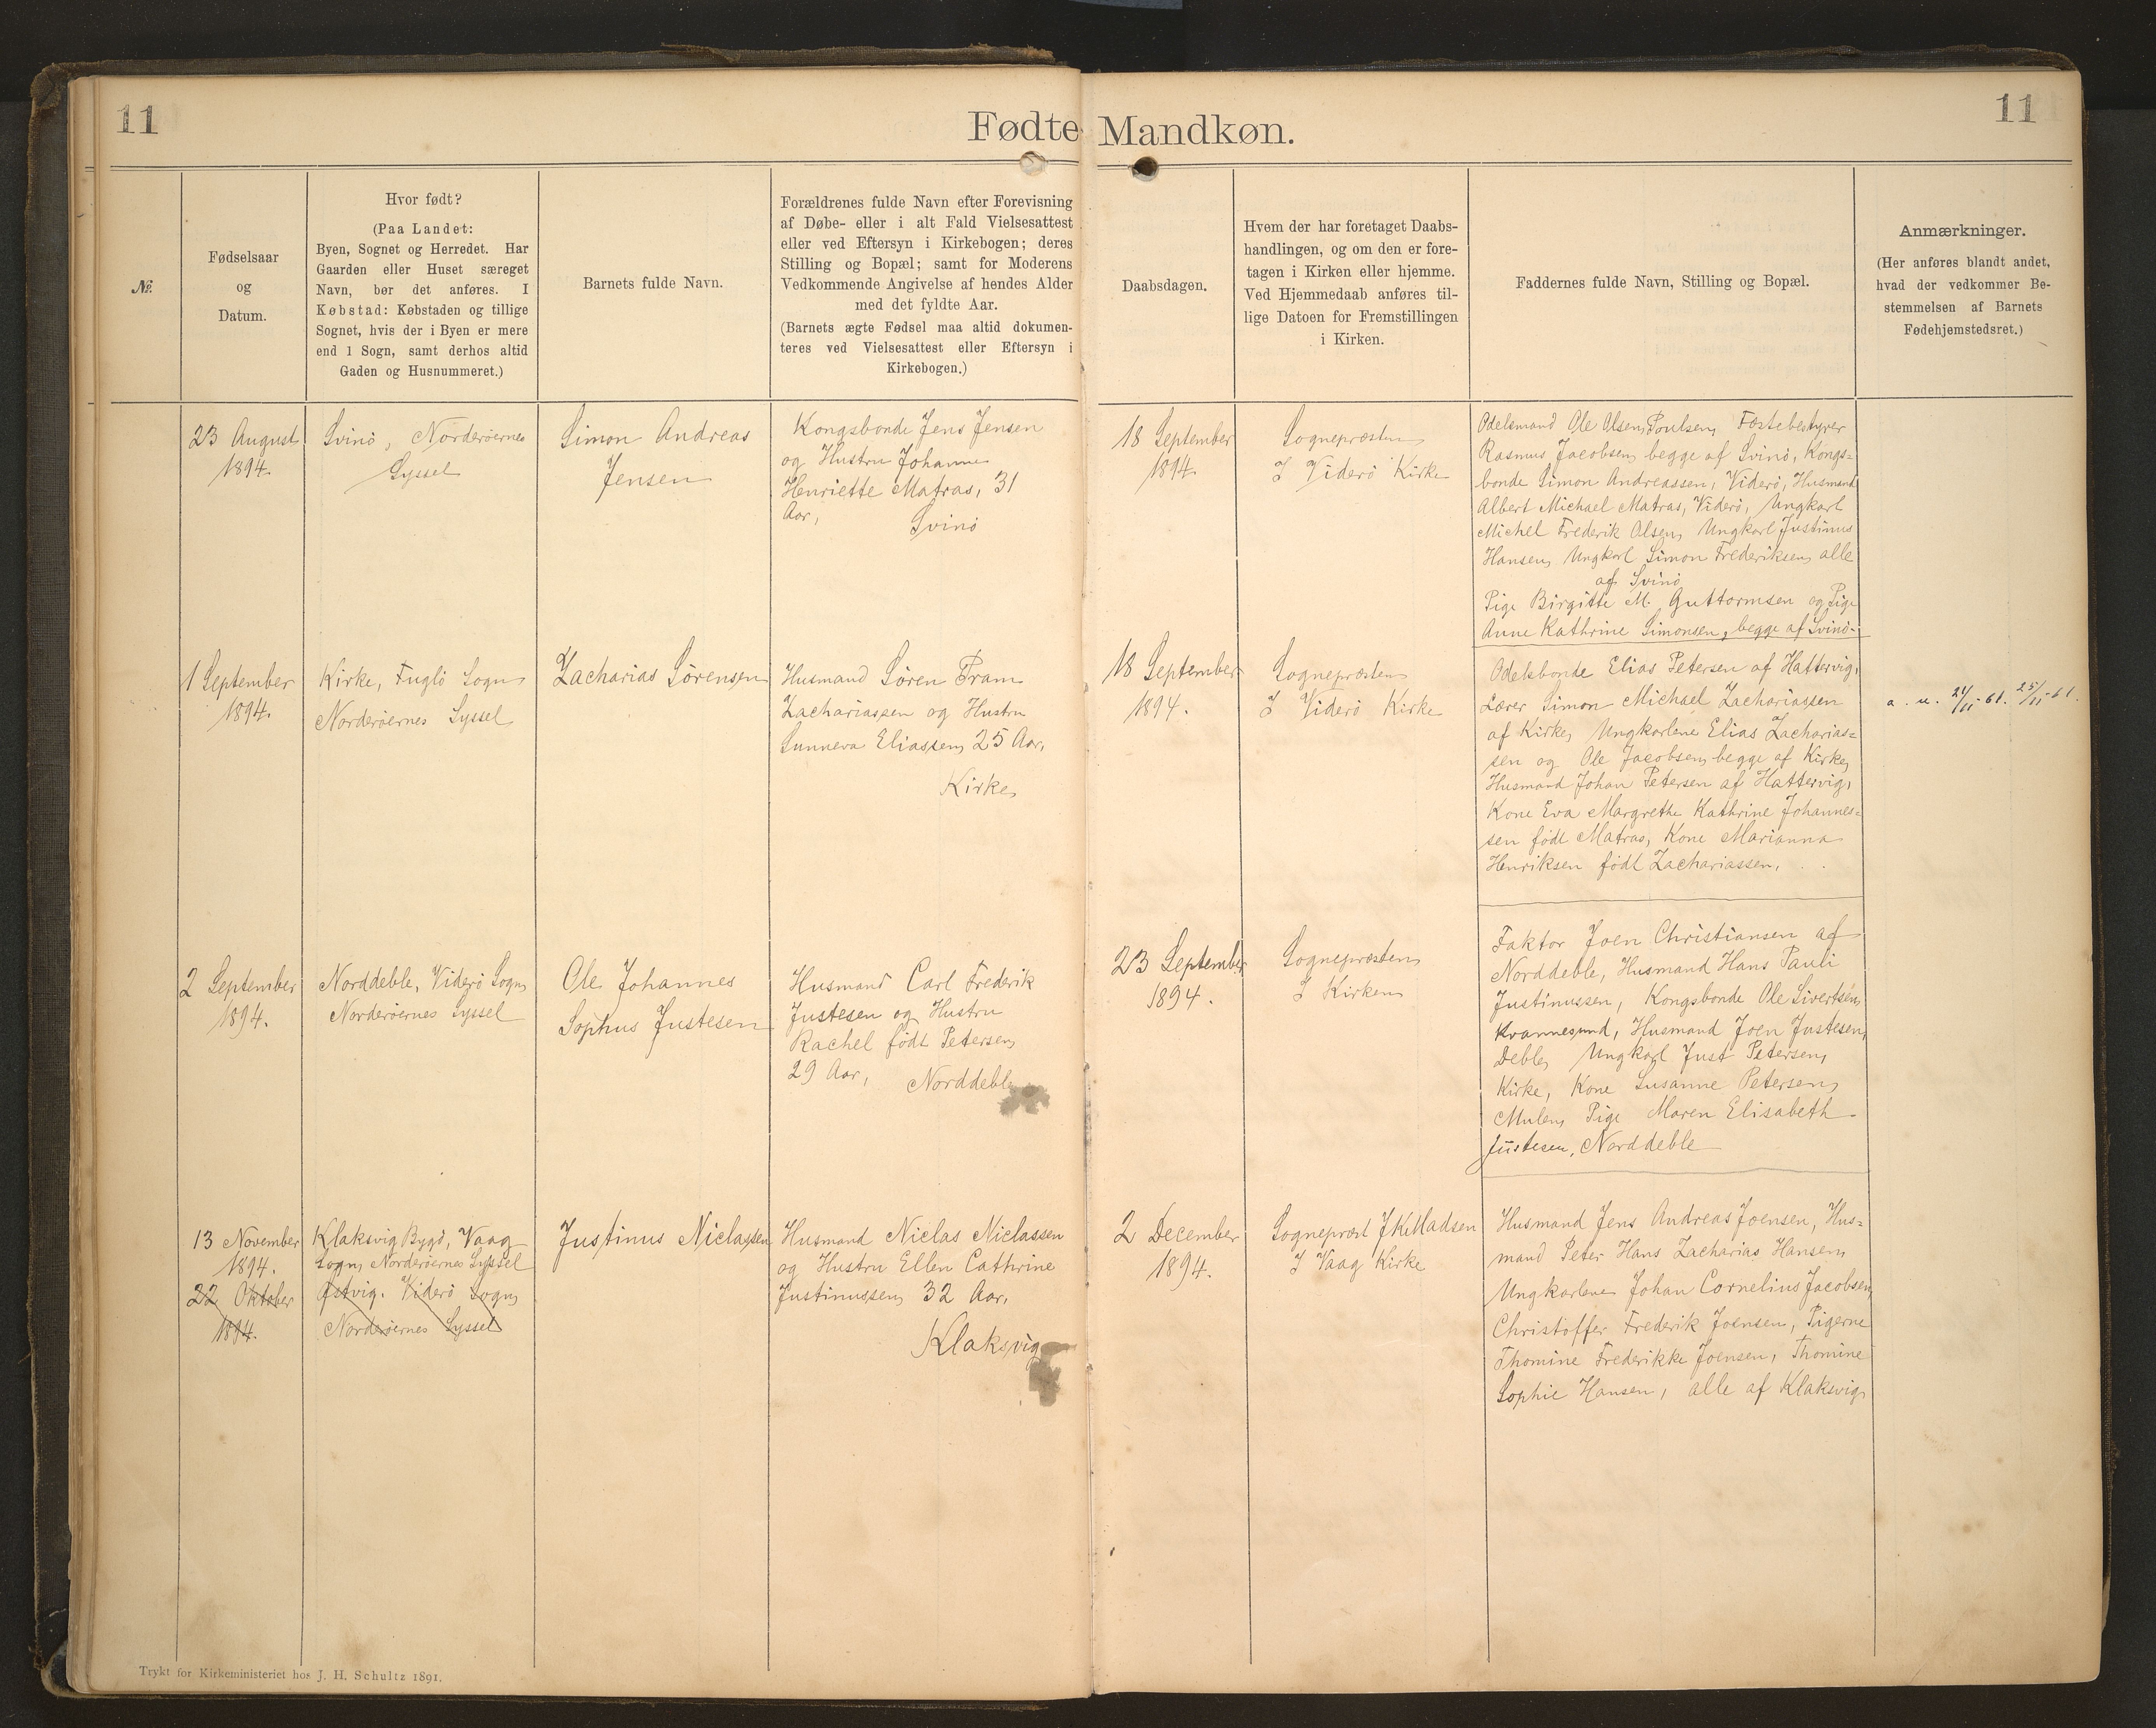 11
Fødte Mandkøn.
11
№.
Fødselsaar
og
Datum.
Hvor født?
(Paa Landet:
Byen, Sognet og Herredet. Har
Gaarden eller Huset særeget
Navn, bør det anføres. I
Købstad: Købstaden og tillige
Sognet, hvis der i Byen er mere
end 1 Sogn, samt derhos altid
Gaden og Husnummeret.)
Barnets fulde Navn.
Forældrenes fulde Navn efter Forevisning
af Døbe- eller i alt Fald Vielsesattest
eller ved Eftersyn i Kirkebogen; deres
Stilling og Bopæl; samt for Moderens
Vedkommende Angivelse af hendes Alder
med det fyldte Aar.
(Barnets ægte Fødsel maa altid dokumen-
teres ved Vielsesattest eller Eftersyn i
Kirkebogen.)
Daabsdagen.
Hvem der har foretaget Daabs-
handlingen, og om den er fore-
tagen i Kirken eller hjemme.
Ved Hjemmedaab anføres til-
lige Datoen for Fremstillingen
i Kirken.
Faddernes fulde Navn, Stilling og Bopæl.
Anmærkninger.
(Her anføres blandt andet,
hvad der vedkommer Be-
stemmelsen af Barnets
Fødehjemstedsret.)
23 August
1894.
Svinö, Norderöernes
Syssel
Simon Andreas
Jensen
Kongsbonde Jens Jensen
og Hustru Johanne
Henriette Matras, 31
Aar,
Svinö
18 September
1894.
Sognepræsten
I Viderö Kirke
Odelsmand Ole Olsen Poulsen, Fæstebestyrer
Rasmus Jacobsen, begge af Svinö, Kongs=
bonde Simon Andreassen, Viderö, Husmand
Albert Michael Matras, Viderö, Ungkarl
Michel Frederik Olsen, Ungkarl Justinus
Hansen, Ungkarl Simon Frederiksen, alle
af Svinö
Pige Birgitte M. Guttormsen og Pige
Anne Kathrine Simonsen, begge af Svinö.
1 September
1894.
Kirke, Fuglö Sogn
Norderöernes Syssel
Zacharias Sörensen
Husmand Sören Fram
Zachariassen og Hustru
Sunneva Eliassen, 25 Aar,
Kirke
18 September
1894.
Sognepræsten
I Viderö Kirke
Odelsbonde Elias Petersen af Hattervig,
Lærer Simon Michael Zachariassen
af Kirke, Ungkarlene Elias Zacharias=
sen og Ole Jacobsen, begge af Kirke,
Husmand Johan Petersen af Hattervig,
Kone Eva Margrethe Kathrine Johannes=
sen födt Matras, Kone Marianna
Henriksen födt Zachariassen,
a. u. 24/11-61. 25/11-61.
2 September
1894.
Norddeble, Viderö Sogn
Norderöernes Syssel
Ole Johannes
Sophus Justesen
Husmand Carl Frederik
Justesen og Hustru
Rachel födt Petersen,
29 Aar,
Norddeble
23 September
1894.
Sognepræsten
I Kirken
Faktor Joen Christiansen af
Norddeble, Husmand Hans Pauli
Justinussen, Kongsbonde Ole Sivertsen,
Kvannesund, Husmand Joen Justesen,
Deble, Ungkarl Just Petersen,
Kirke, Kone Susanne Petersen,
Mulen, Pige Maren Elisabeth
Justesen, Norddeble
13 November
1894.
Klaksvig Bygd, Vaag
Sogn, Norderöernes Syssel
22 Oktober
1894.
Östvig. Viderö Sogn,
Norderöernes Syssel
Justinus Niclassen
Husmand Niclas Niclassen
og Hustru Ellen Cathrine
Justinussen, 32 Aar,
Klaksvig
2 December
1894.
Sognepræst J K Madsen
I Vaag Kirke
Husmand Jens Andreas Joensen, Hus=
mand Peter Hans Zacharias Hansen,
Ungkarlene Johan Cornelius Jacobsen,
Christoffer Frederik Joensen, Pigerne
Thomine Frederikke Joensen, Thomine
Sophie Hansen, alle af Klaksvig,
Trykt for Kirkeministeriet hos J. H. Schultz 1891.